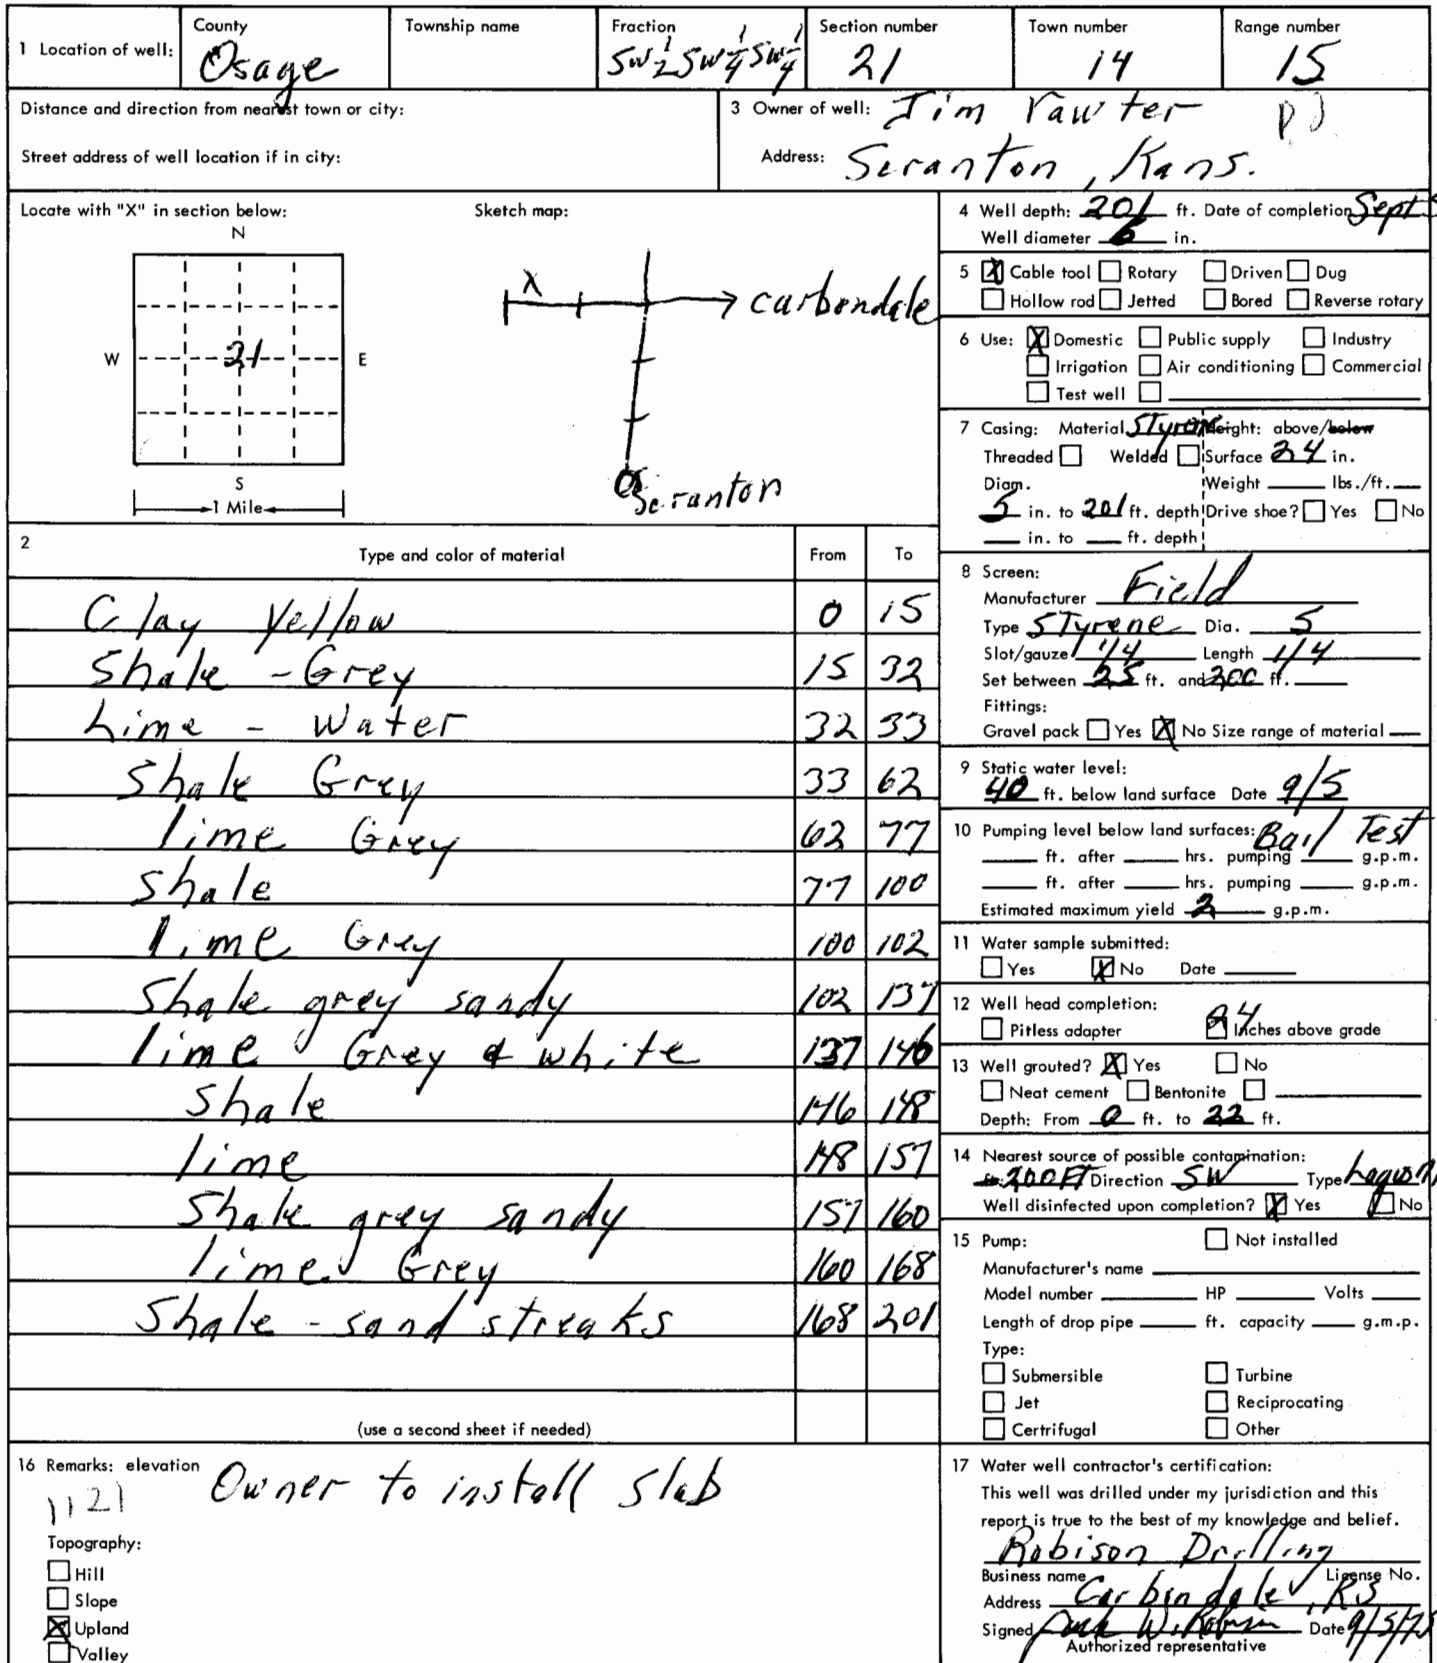 1 Location of well:
County
Osage
Township name
Fraction
SW 1/2 SW 1/4 SW 1/4
Section number
21
Town number
14
Range number
15
Distance and direction from nearest town or city:
Street address of well location if in city:
3 Owner of well: Jim Vawter
Address: Scranton, Kans.
Locate with "X" in section below:
N
W
21
E
S
1 Mile
Sketch map:
X
carbondale
Scranton
4 Well depth: 201 ft. Date of completion Sept 5
Well diameter 6 in.
5 X Cable tool Rotary Driven Dug
Hollow rod Jetted Bored Reverse rotary
6 Use: X Domestic Public supply Industry
Irrigation Air conditioning Commercial
Test well
7 Casing: Material Styrene Height: above/below
Threaded Welded Surface 24 in.
Diam. Weight lbs./ft.
5 in. to 201 ft. depth Drive shoe? Yes No
in. to ft. depth
2
Type and color of material From To
Clay Yellow 0 15
Shale - Grey 15 32
Lime - Water 32 33
Shale Grey 33 62
lime Grey 62 77
Shale 77 100
lime Grey 100 102
Shale grey sandy 102 137
lime Grey & white 137 146
Shale 146 148
lime 148 157
Shale grey sandy 157 160
lime Grey 160 168
Shale - sand streaks 168 201
(use a second sheet if needed)
8 Screen:
Manufacturer Field
Type STyrene Dia. 5
Slot/gauze 1/4 Length 1/4
Set between 25 ft. and 200 ft.
Fittings:
Gravel pack Yes X No Size range of material
9 Static water level:
40 ft. below land surface Date 9/5
10 Pumping level below land surfaces: Bail Test
ft. after hrs. pumping g.p.m.
ft. after hrs. pumping g.p.m.
Estimated maximum yield 2 g.p.m.
11 Water sample submitted:
Yes X No Date
12 Well head completion:
Pitless adapter 24 Inches above grade
13 Well grouted? X Yes No
Neat cement Bentonite
Depth: From 0 ft. to 22 ft.
14 Nearest source of possible contamination:
ft. 200 FT Direction SW Type Lagoon
Well disinfected upon completion? X Yes No
15 Pump: Not installed
Manufacturer's name
Model number HP Volts
Length of drop pipe ft. capacity g.m.p.
Type:
Submersible Turbine
Jet Reciprocating
Certrifugal Other
16 Remarks: elevation Owner to install slab
1121
Topography:
Hill
Slope
X Upland
Valley
17 Water well contractor's certification:
This well was drilled under my jurisdiction and this
report is true to the best of my knowledge and belief.
Robison Drilling
Business name License No.
Address Carbondale, KS
Signed W. Robison Date 9/5/75
Authorized representative